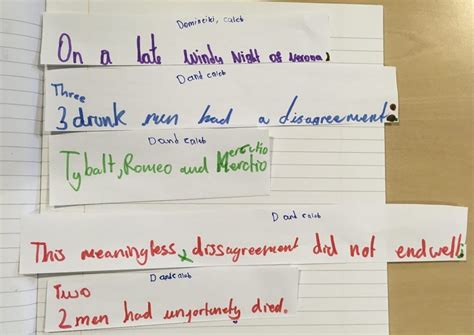 Dominiki, caleb
On a late windy Night of verona,
D and caleb
Three
3 drunk men had a disagreement:
D and caleb
Tybalt, Romeo and Merctio
Merctio
D and caleb
This meaningless, dissagreement did not end well:
D and caleb
Two
2 men had unfortunety died.